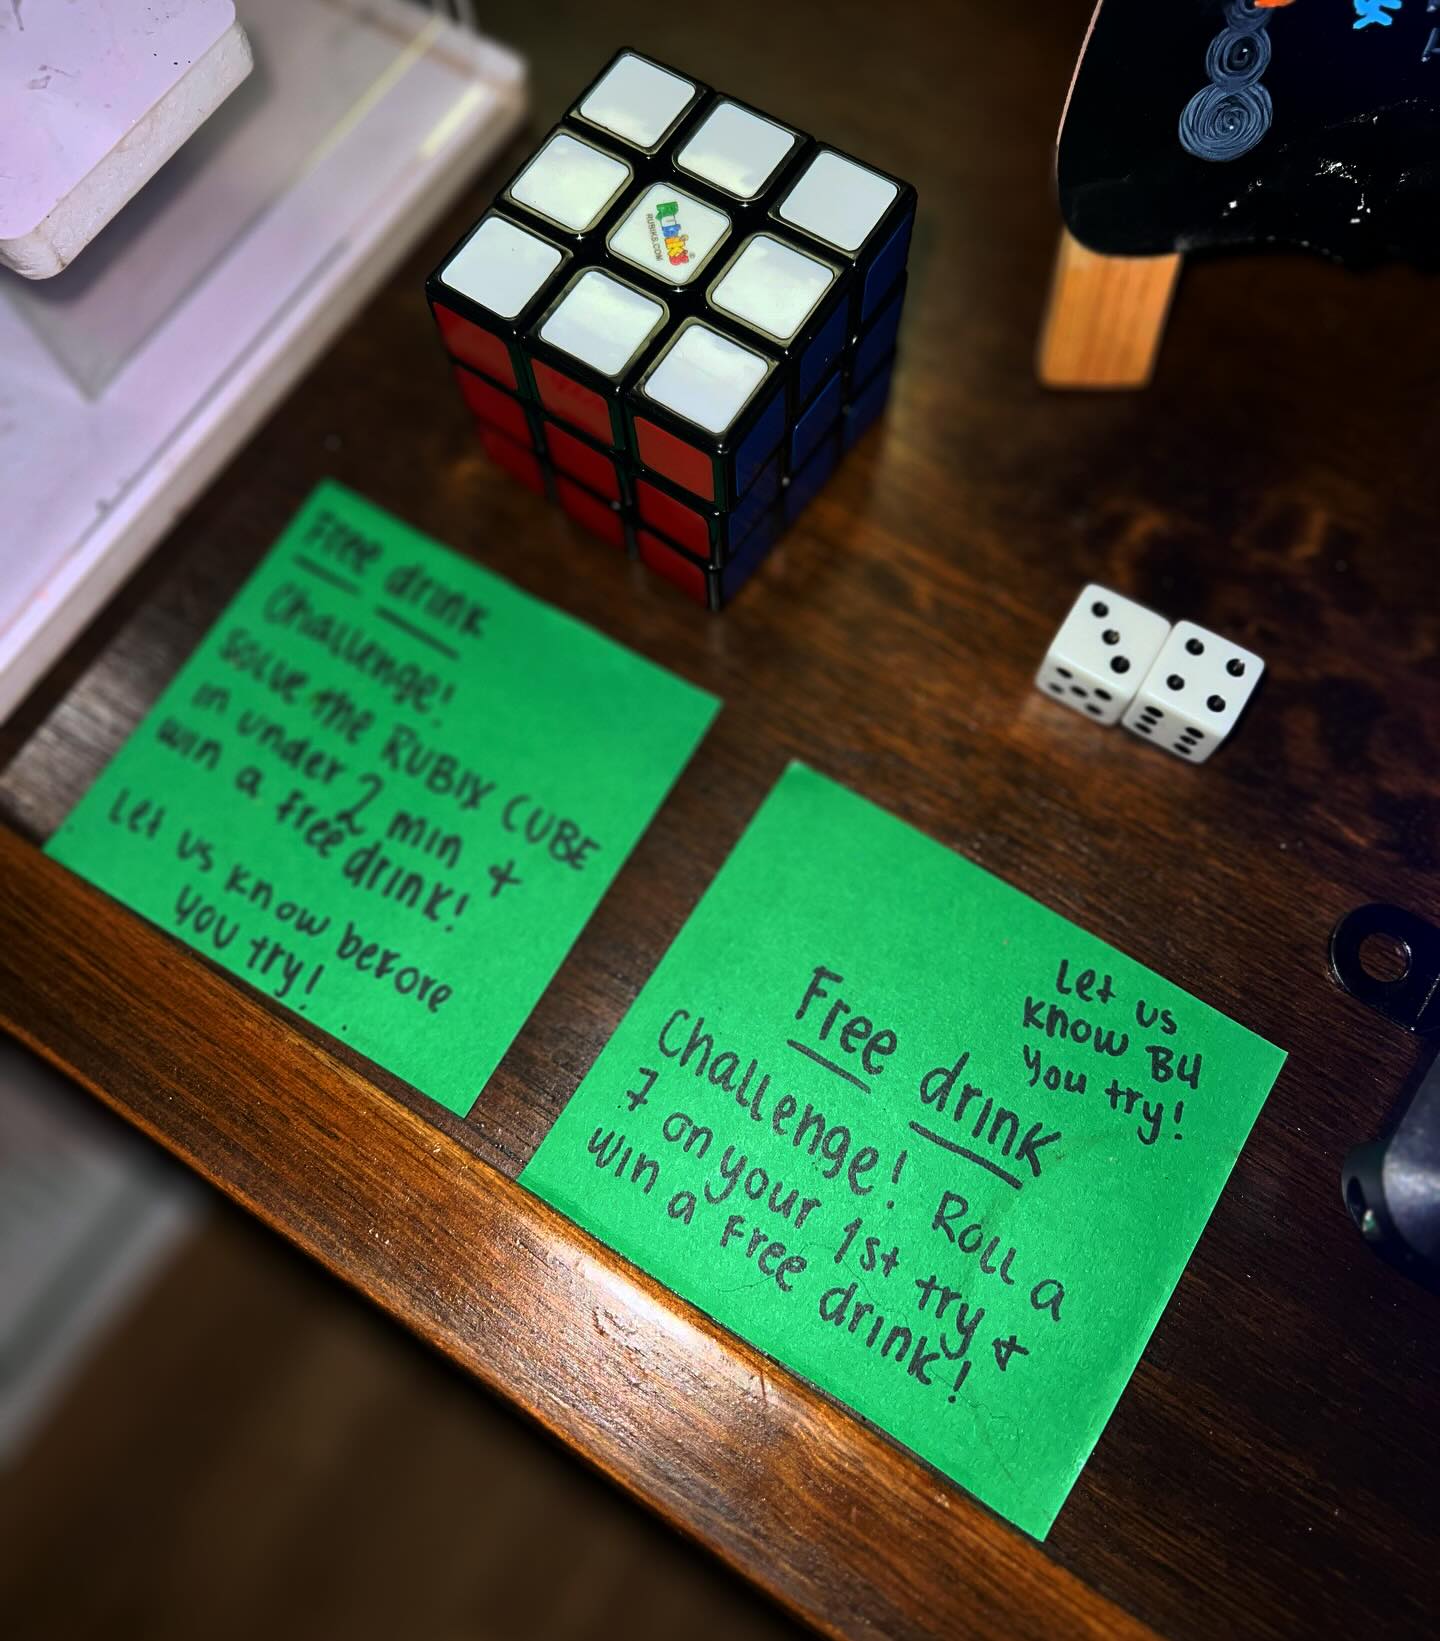 Rubik's
RUBIKS.COM
Free drink
Challenge!
solve the RUBIX CUBE
in under 2 min +
win a free drink!
Let us know before
you try!
Let us
know B4
you try!
Free drink
Challenge! Roll a
7 on your 1st try +
win a free drink!